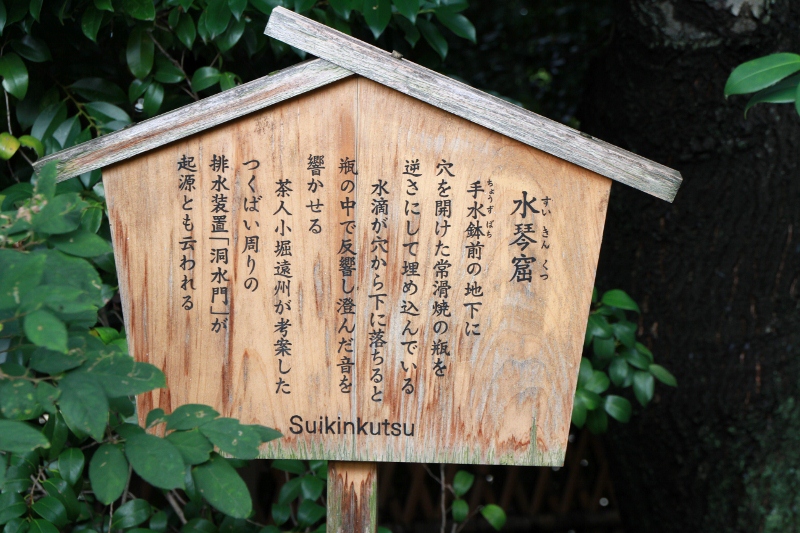 水琴窟
すいきんくつ
手水鉢前の地下に
ちょうずばち
穴を開けた常滑焼の瓶を
逆さにして埋め込んでいる
水滴が穴から下に落ちると
瓶の中で反響し澄んだ音を
響かせる
茶人小堀遠州が考案した
つくばい周りの
排水装置「洞水門」が
起源とも云われる
Suikinkutsu